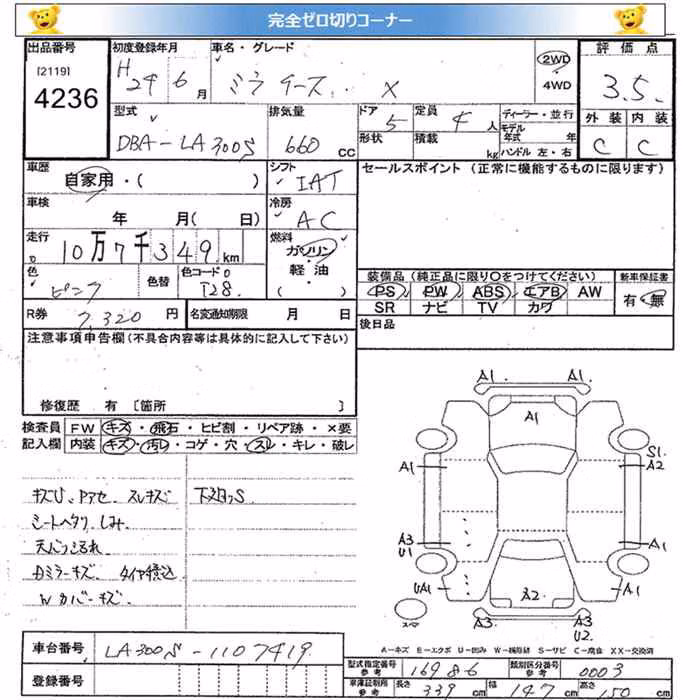 完全ゼロ切りコーナー
出品番号
[2119]
4236
初度登録年月
H24 6月
車名・グレード
ミラ イース X
2WD
4WD
評価点
3.5
外装 内装
C C
型式
DBA-LA300S
排気量
660 CC
ドア
5
形状
定員
4 人
積載
kg
ディーラー・並行
モデル年式 年
ハンドル 左・右
車歴
自家用・( )
シフト
IAT
セールスポイント (正常に機能するものに限ります)
車検
年 月( 日)
冷房
AC
走行
10万7千349km
燃料
ガソリン
・
軽・油
( )
色
ピンク
色替
色コード
T28.
装備品(純正品に限り○をつけてください)
PS PW ABS エアB AW
SR ナビ TV カワ
新車保証書
有・無
R券
7,320 円
名変通知期限 月 日
後日品
注意事項申告欄(不具合内容等は具体的に記入して下さい)
修復歴 有 [箇所 ]
検査員
記入欄
FW キズ・飛石・ヒビ割・リペア跡・×要
内装 キズ・汚レ・コゲ・穴・スレ・キレ・破レ
シートヘタリ しみ
Dミラーキズ タイヤ積込
Wカバーキズ
A1 A1.
A1
S1.
A1 A2
A3
U1
A1
UA1 A1
A2
A3 A3
U2
スペア
A-キズ E-エクボ U-凹み W-補修跡 S-サビ C-腐食 XX-交換済
車台番号
LA300S-1107419
登録番号
型式指定番号
参考
16986
類別区分番号
参考
0003
車庫証明所
参考
長さ 339 cm
幅 147 cm
高さ 150 cm